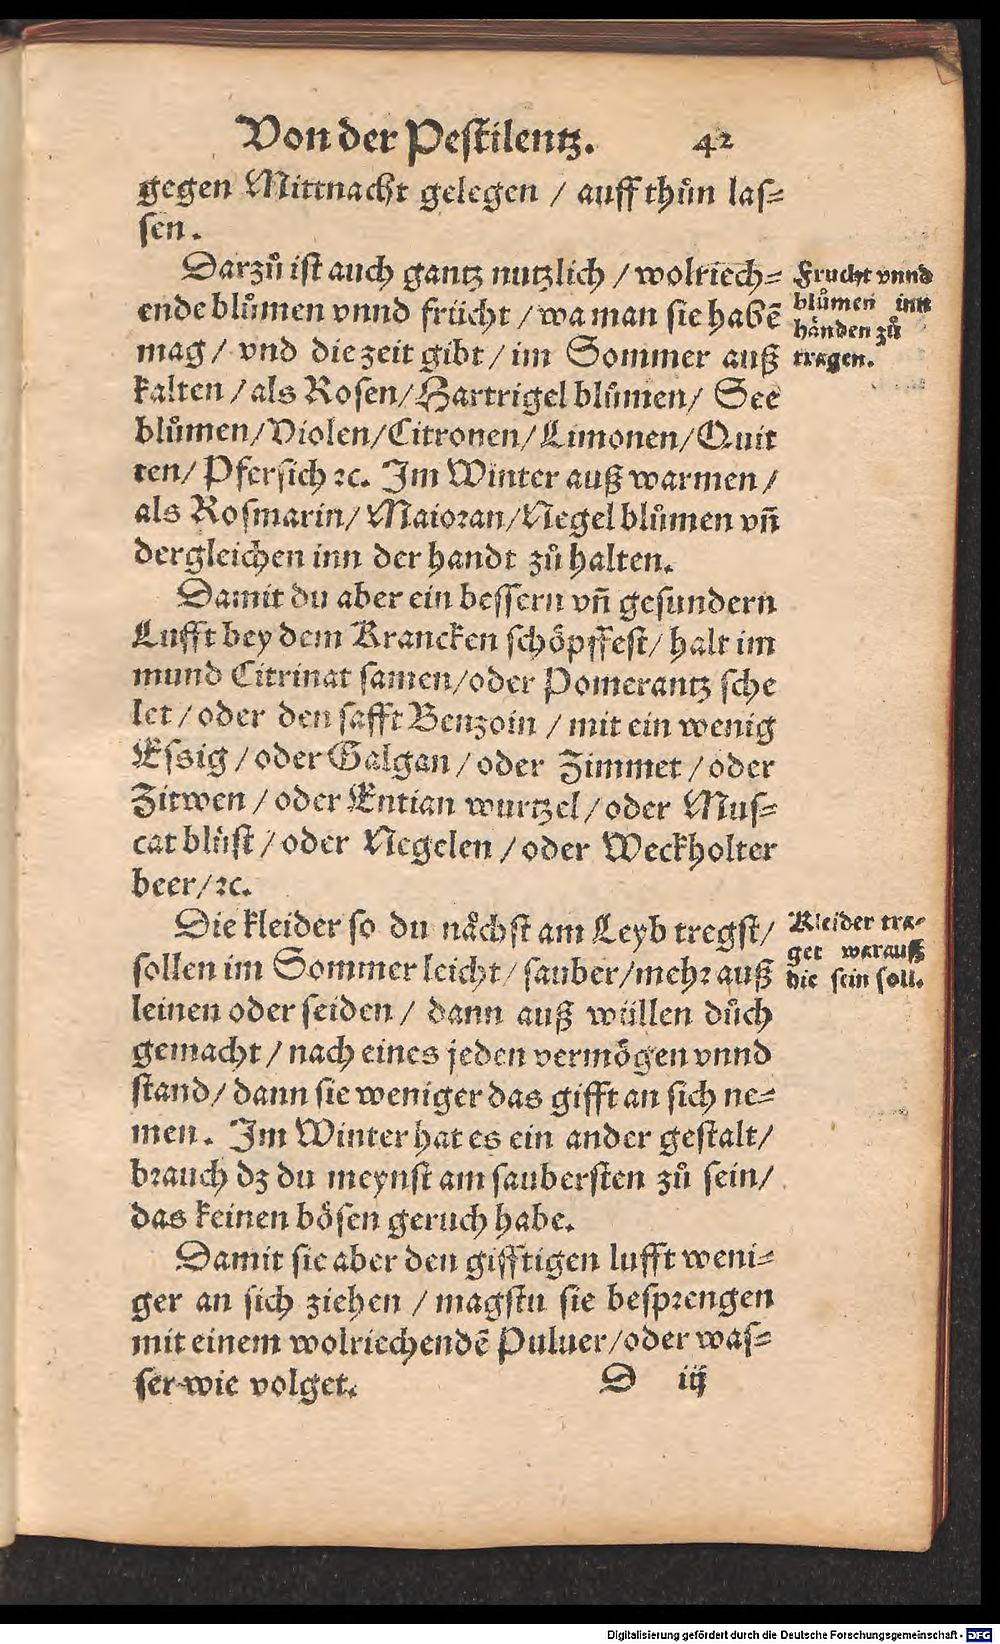 Von der Pestilentz. 42
gegen Mittnacht gelegen / auff thůn las=
sen.
Darzů ist auch gantz nutzlich / wolriech=
ende blůmen vnnd frücht / wa man sie habē
mag / vnd die zeit gibt / im Sommer auß
kalten / als Rosen / Hartrigel blůmen / See
blůmen / Violen / Citronen / Limonen / Quit
ten / Pfersich ꝛc. Im Winter auß warmen /
als Rosmarin / Maioran / Negel blůmen vñ
dergleichen inn der handt zů halten.
Frucht vnnd
blůmen inn
händen zů
tragen.
Damit du aber ein bessern vñ gesundern
Lufft bey dem Krancken schöpffest / halt im
mund Citrinat samen / oder Pomerantz sche
let / oder den safft Benzoin / mit ein wenig
Essig / oder Galgan / oder Zimmet / oder
Zitwen / oder Entian wurtzel / oder Mus=
cat blůst / oder Negelen / oder Weckholter
beer / ꝛc.
Die kleider so du nåchst am Leyb tregst /
sollen im Sommer leicht / sauber / mehr auß
leinen oder seiden / dann auß wüllen důch
gemacht / nach eines jeden vermögen vnnd
stand / dann sie weniger das gifft an sich ne=
men. Im Winter hat es ein ander gestalt /
brauch dz du meynst am saubersten zů sein /
das keinen bösen geruch habe.
Kleider tra=
get warauß
die sein soll.
Damit sie aber den gifftigen lufft weni=
ger an sich ziehen / magstu sie besprengen
mit einem wolriechendē Puluer / oder was=
ser wie volget.
D iij
Digitalisierung gefördert durch die Deutsche Forschungsgemeinschaft - DFG